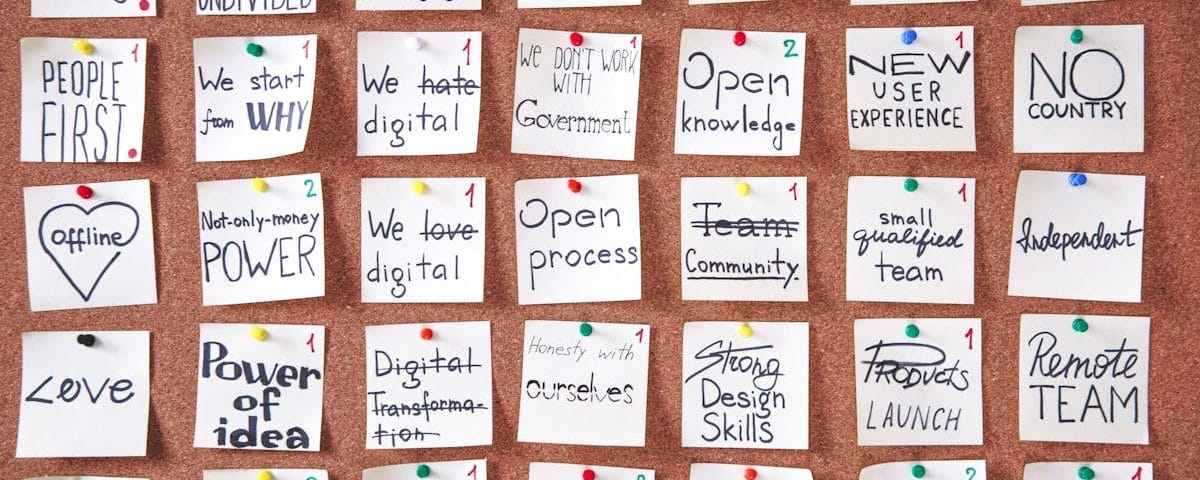 UNDIVIDED
1
PEOPLE
FIRST.
1
We start
from WHY
1
We hate
digital
1
We DON'T WORK
WITH
Government
2
Open
knowledge
1
NEW
USER
EXPERIENCE
NO
COUNTRY
offline
2
Not-only-money
POWER
1
We love
digital
Open
process
1
Team
Community.
1
small
qualified
team
Independent
Love
1
Power
of
idea
Digital
Transforma-
tion
1
Honesty with
ourselves
Strong
Design
Skills
1
Products
LAUNCH
Remote
TEAM
1
2
1